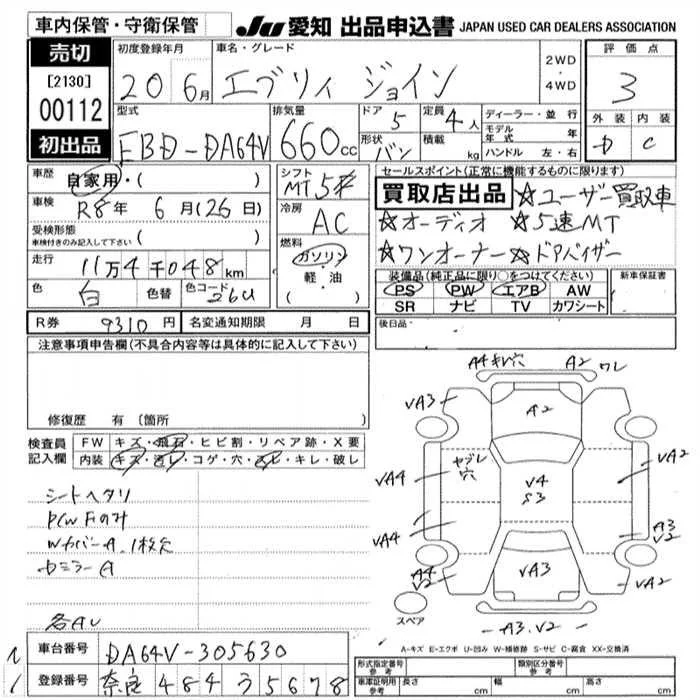 車内保管・守衛保管
JU 愛知 出品申込書 JAPAN USED CAR DEALERS ASSOCIATION
売切
[2130]
00112
初出品
初度登録年月
20 6月
車名・グレード
エブリィ ジョイン
2WD
・
4WD
評価点
3
外装 内装
D C
型式
EBD-DA64V
排気量
660cc
ドア
5
定員
4人
形状
バン
積載
kg
ディーラー・並行
モデル年式 年
ハンドル 左・右
車歴
自家用・( )
車検
R8年 6月(26日)
受検形態
車検付きのみ記入して下さい ( )
走行
11万4千048km
色
白
色替
色コード
26U
シフト
MT 5速
冷房
AC
燃料
ガソリン
軽・油
( )
セールスポイント(正常に機能するものに限ります)
買取店出品 ☆ユーザー買取車
☆オーディオ ☆5速MT
☆ワンオーナー ☆ドアバイザー
装備品(純正品に限り○をつけてください)
PS PW エアB AW
SR ナビ TV カワシート
新車保証書
R券 9310円 名変通知期限 月 日
後日品
注意事項申告欄(不具合内容等は具体的に記入して下さい)
修復歴 有 〔箇所
検査員記入欄
FW キズ・飛石・ヒビ割・リペア跡・X要
内装 キズ・汚レ・コゲ・穴・スレ・キレ・破レ
シートヘタリ
P/W Fのみ
WカバーA、1枚欠
ドミラーA
各AU
A4キレ穴 A2 ワレ
VA3
A2
ヤブレ
穴
VA2
VA4
V4
S3
VA4
A3
V2
A4
V2
VA3
VA2
スペア
A3.V2
A-キズ E-エクボ U-凹み W-補修跡 S-サビ C-腐食 XX-交換済
車台番号 DA64V-305630
登録番号 奈良 484 う 5678
形式指定番号
参考
類別区分番号
参考
車庫証明用
参考
長さ cm 幅 cm 高さ cm